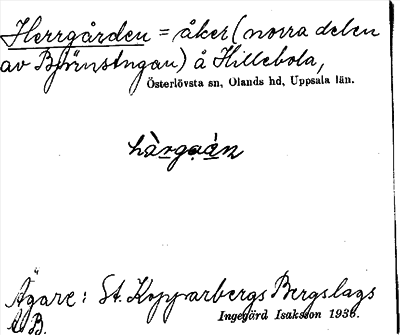 Herrgården = åker (norra delen
av Björnstngan) å Hillebola,
Österlövsta sn, Olands hd, Uppsala län.
hàrgaán
Ägare: St. Kopparbergs Bergslags
A.B.
Ingegärd Isaksson 1936.